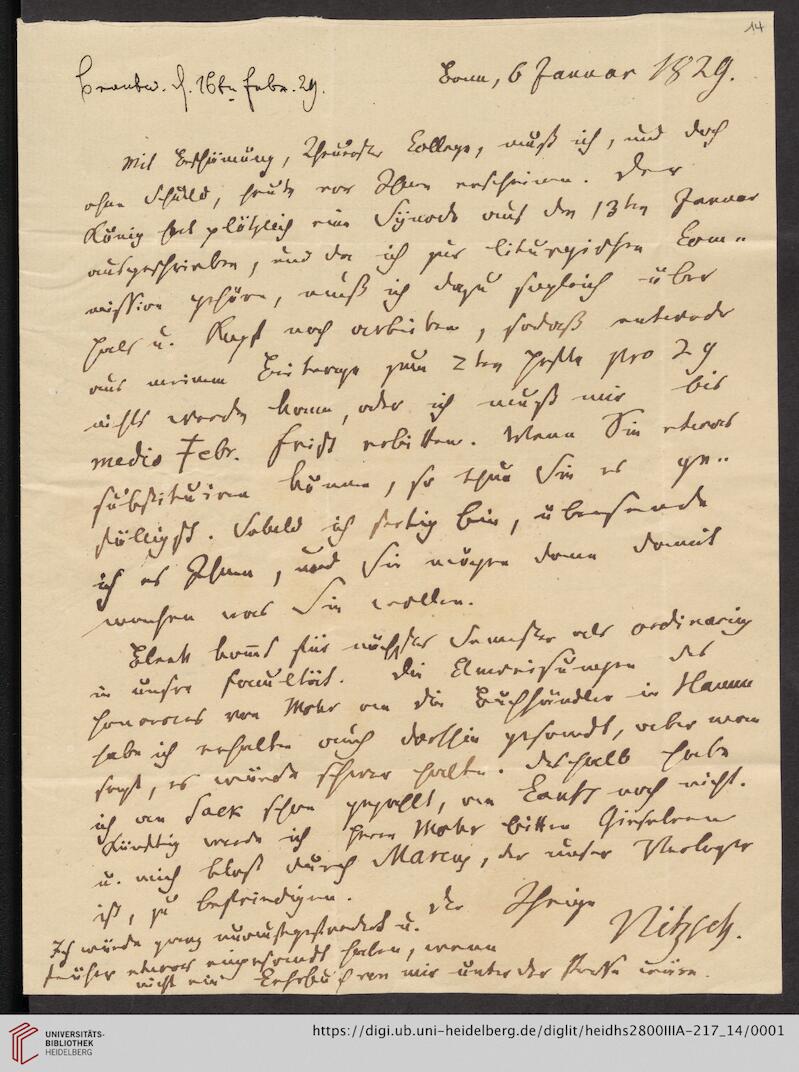 14
Beantw. d. 16ten Febr. 29.
Bonn, 6 Januar 1829.
Mit Beschämung, Theuerster College, muß ich, und doch
ohne Schuld, heute vor Ihnen erscheinen. Der
König hat plötzlich eine Synode auf den 13ten Januar
ausgeschrieben, und da ich zur liturgischen Com-
mission gehöre, muß ich dazu sogleich über
Hals u. Kopf noch arbeiten, sodaß entweder
aus meinem Beitrage zum 2ten Hefte pro 29
nichts werden kann, oder ich muß mir bis
medio Febr. Frist erbitten. Wenn Sie etwas
substituiren können, so thun Sie es ge-
fälligst. Sobald ich fertig bin, übersende
ich es Ihnen, und Sie mögen dann damit
machen was Sie wollen.
Bleek kommt für nächstes Semester als ordinarius
in unsre Facultät. Die Anweisungen des
Honorars von Mohr an die Buchhändler in Hamm
habe ich erhalten auch dorthin gesandt, aber man
sagt, es würde schwer halten. Deshalb habe
ich an Sack schon gezahlt, an noch nicht.
Künftig werde ich Herrn Mohr bitten Gieseleren
u. mich bloß durch Marcus, der unser Verleger
ist, zu befriedigen.
Der Ihrige
Nitzsch.
Ich würde ganz unausgesetzt u.
früher etwas eingesandt haben, wenn
nicht ein Lehrbuch von mir unter der Presse wäre.
UNIVERSITÄTS-
BIBLIOTHEK
HEIDELBERG
https://digi.ub.uni-heidelberg.de/diglit/heidhs2800IIIA-217_14/0001